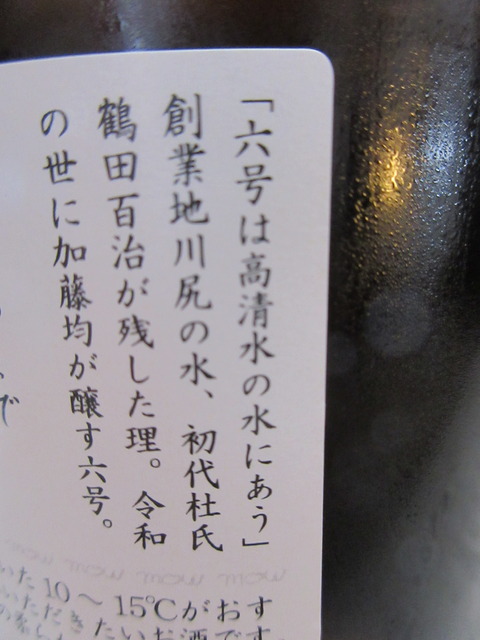 「六号は高清水の水にあう」
創業地川尻の水、初代杜氏
鶴田百治が残した理。令和
の世に加藤均が醸す六号。
いた10～15℃がおす
いただきたいお酒です